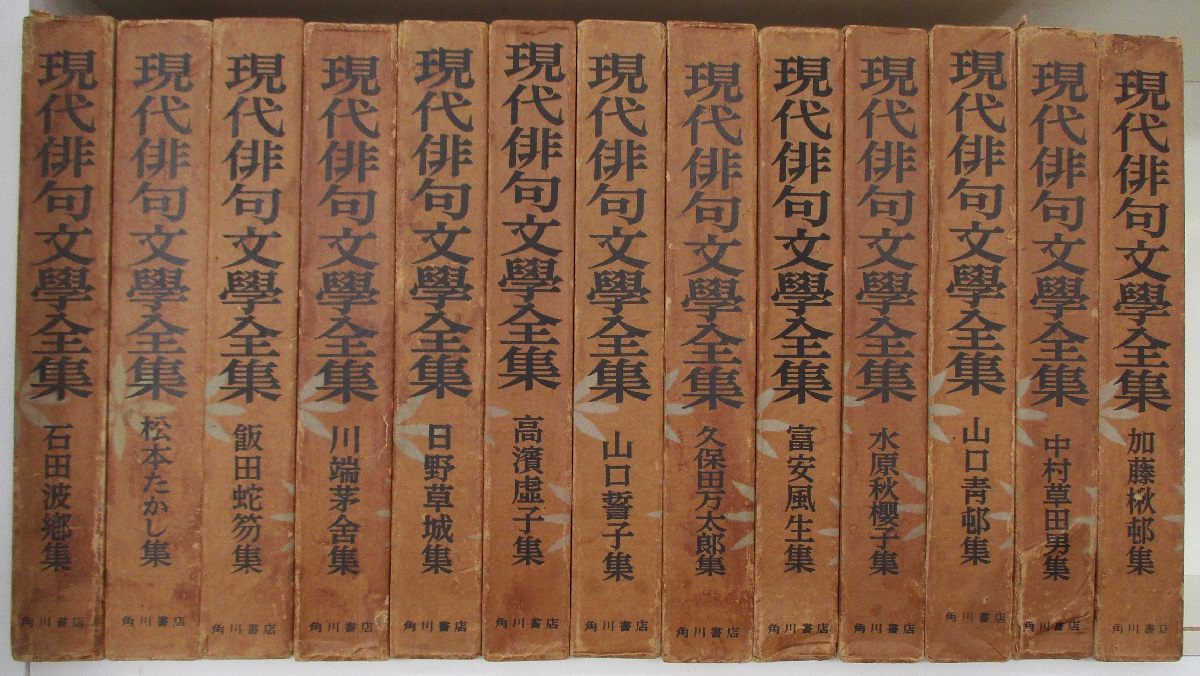 現代俳句文學全集
石田波郷集
角川書店
現代俳句文學全集
松本たかし集
角川書店
現代俳句文學全集
飯田蛇笏集
角川書店
現代俳句文學全集
川端茅舍集
角川書店
現代俳句文學全集
日野草城集
角川書店
現代俳句文學全集
高濱虛子集
角川書店
現代俳句文學全集
山口誓子集
角川書店
現代俳句文學全集
久保田万太郎集
角川書店
現代俳句文學全集
富安風生集
角川書店
現代俳句文學全集
水原秋櫻子集
角川書店
現代俳句文學全集
山口青邨集
角川書店
現代俳句文學全集
中村草田男集
角川書店
現代俳句文學全集
加藤楸邨集
角川書店